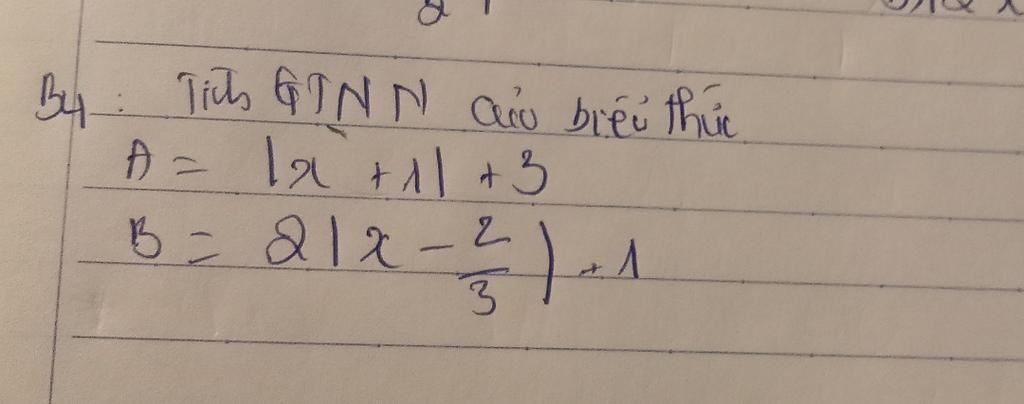 B4: Tính GTNN của biểu thức
A = |x + 1| + 3
B = 2|x - 2/3| + 1